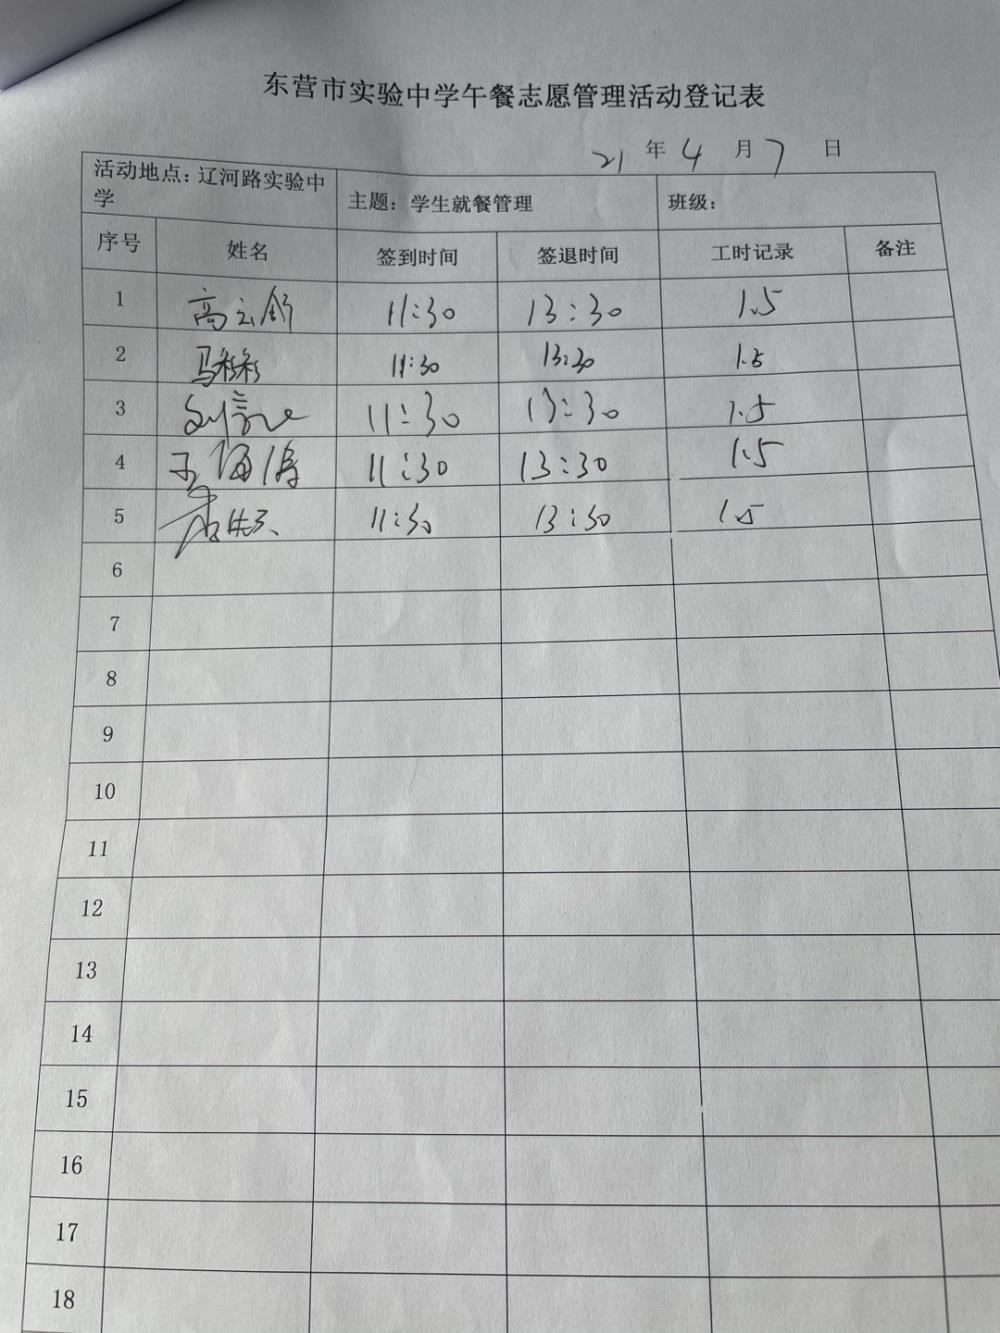 东营市实验中学午餐志愿管理活动登记表
21 年 4 月 7 日
活动地点：辽河路实验中学 主题：学生就餐管理 班级：
序号 姓名 签到时间 签退时间 工时记录 备注
1 高云舒 11:30 13:30 1.5
2 马彩彩 11:30 13:30 1.5
3 刘 11:30 13:30 1.5
4 王海涛 11:30 13:30 1.5
5 11:30 13:30 1.5
6
7
8
9
10
11
12
13
14
15
16
17
18